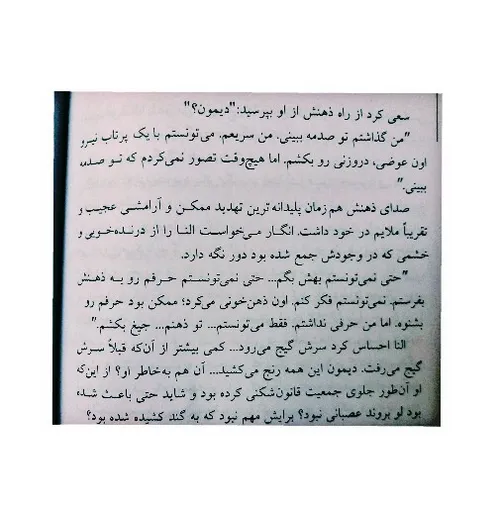 سعی کرد از راه ذهنش از او بپرسید:"دیمون؟"
"من گذاشتم تو صدمه ببینی. من سریعم. می‌تونستم با یک پرتاب نیرو
اون عوضی، دروزنی رو بکشم. اما هیچ‌وقت تصور نمی‌کردم که تو صدمه
ببینی."
صدای ذهنش هم زمان پلیدانه ترین تهدید ممکن و آرامشی عجیب و
تقریباً ملایم در خود داشت. انگار می‌خواست النا را از درنده‌خویی و
خشمی که در وجودش جمع شده بود دور نگه دارد.
"حتی نمی‌تونستم بهش بگم... حتی نمی‌تونستم حرفم رو به ذهنش
بفرستم. نمی‌تونستم فکر کنم. اون ذهن‌خونی می‌کرد؛ ممکن بود حرفم رو
بشنوه. اما من حرفی نداشتم. فقط می‌تونستم... تو ذهنم... جیغ بکشم."
النا احساس کرد سرش گیج می‌رود... کمی بیشتر از آن‌که قبلاً سرش
گیج می‌رفت. دیمون این همه رنج می‌کشید... آن هم به‌خاطر او؟ از این‌که
او آن‌طور جلوی جمعیت قانون‌شکنی کرده بود و شاید حتی باعث شده
بود لو بروند عصبانی نبود؟ برایش مهم نبود که به گند کشیده شده بود؟